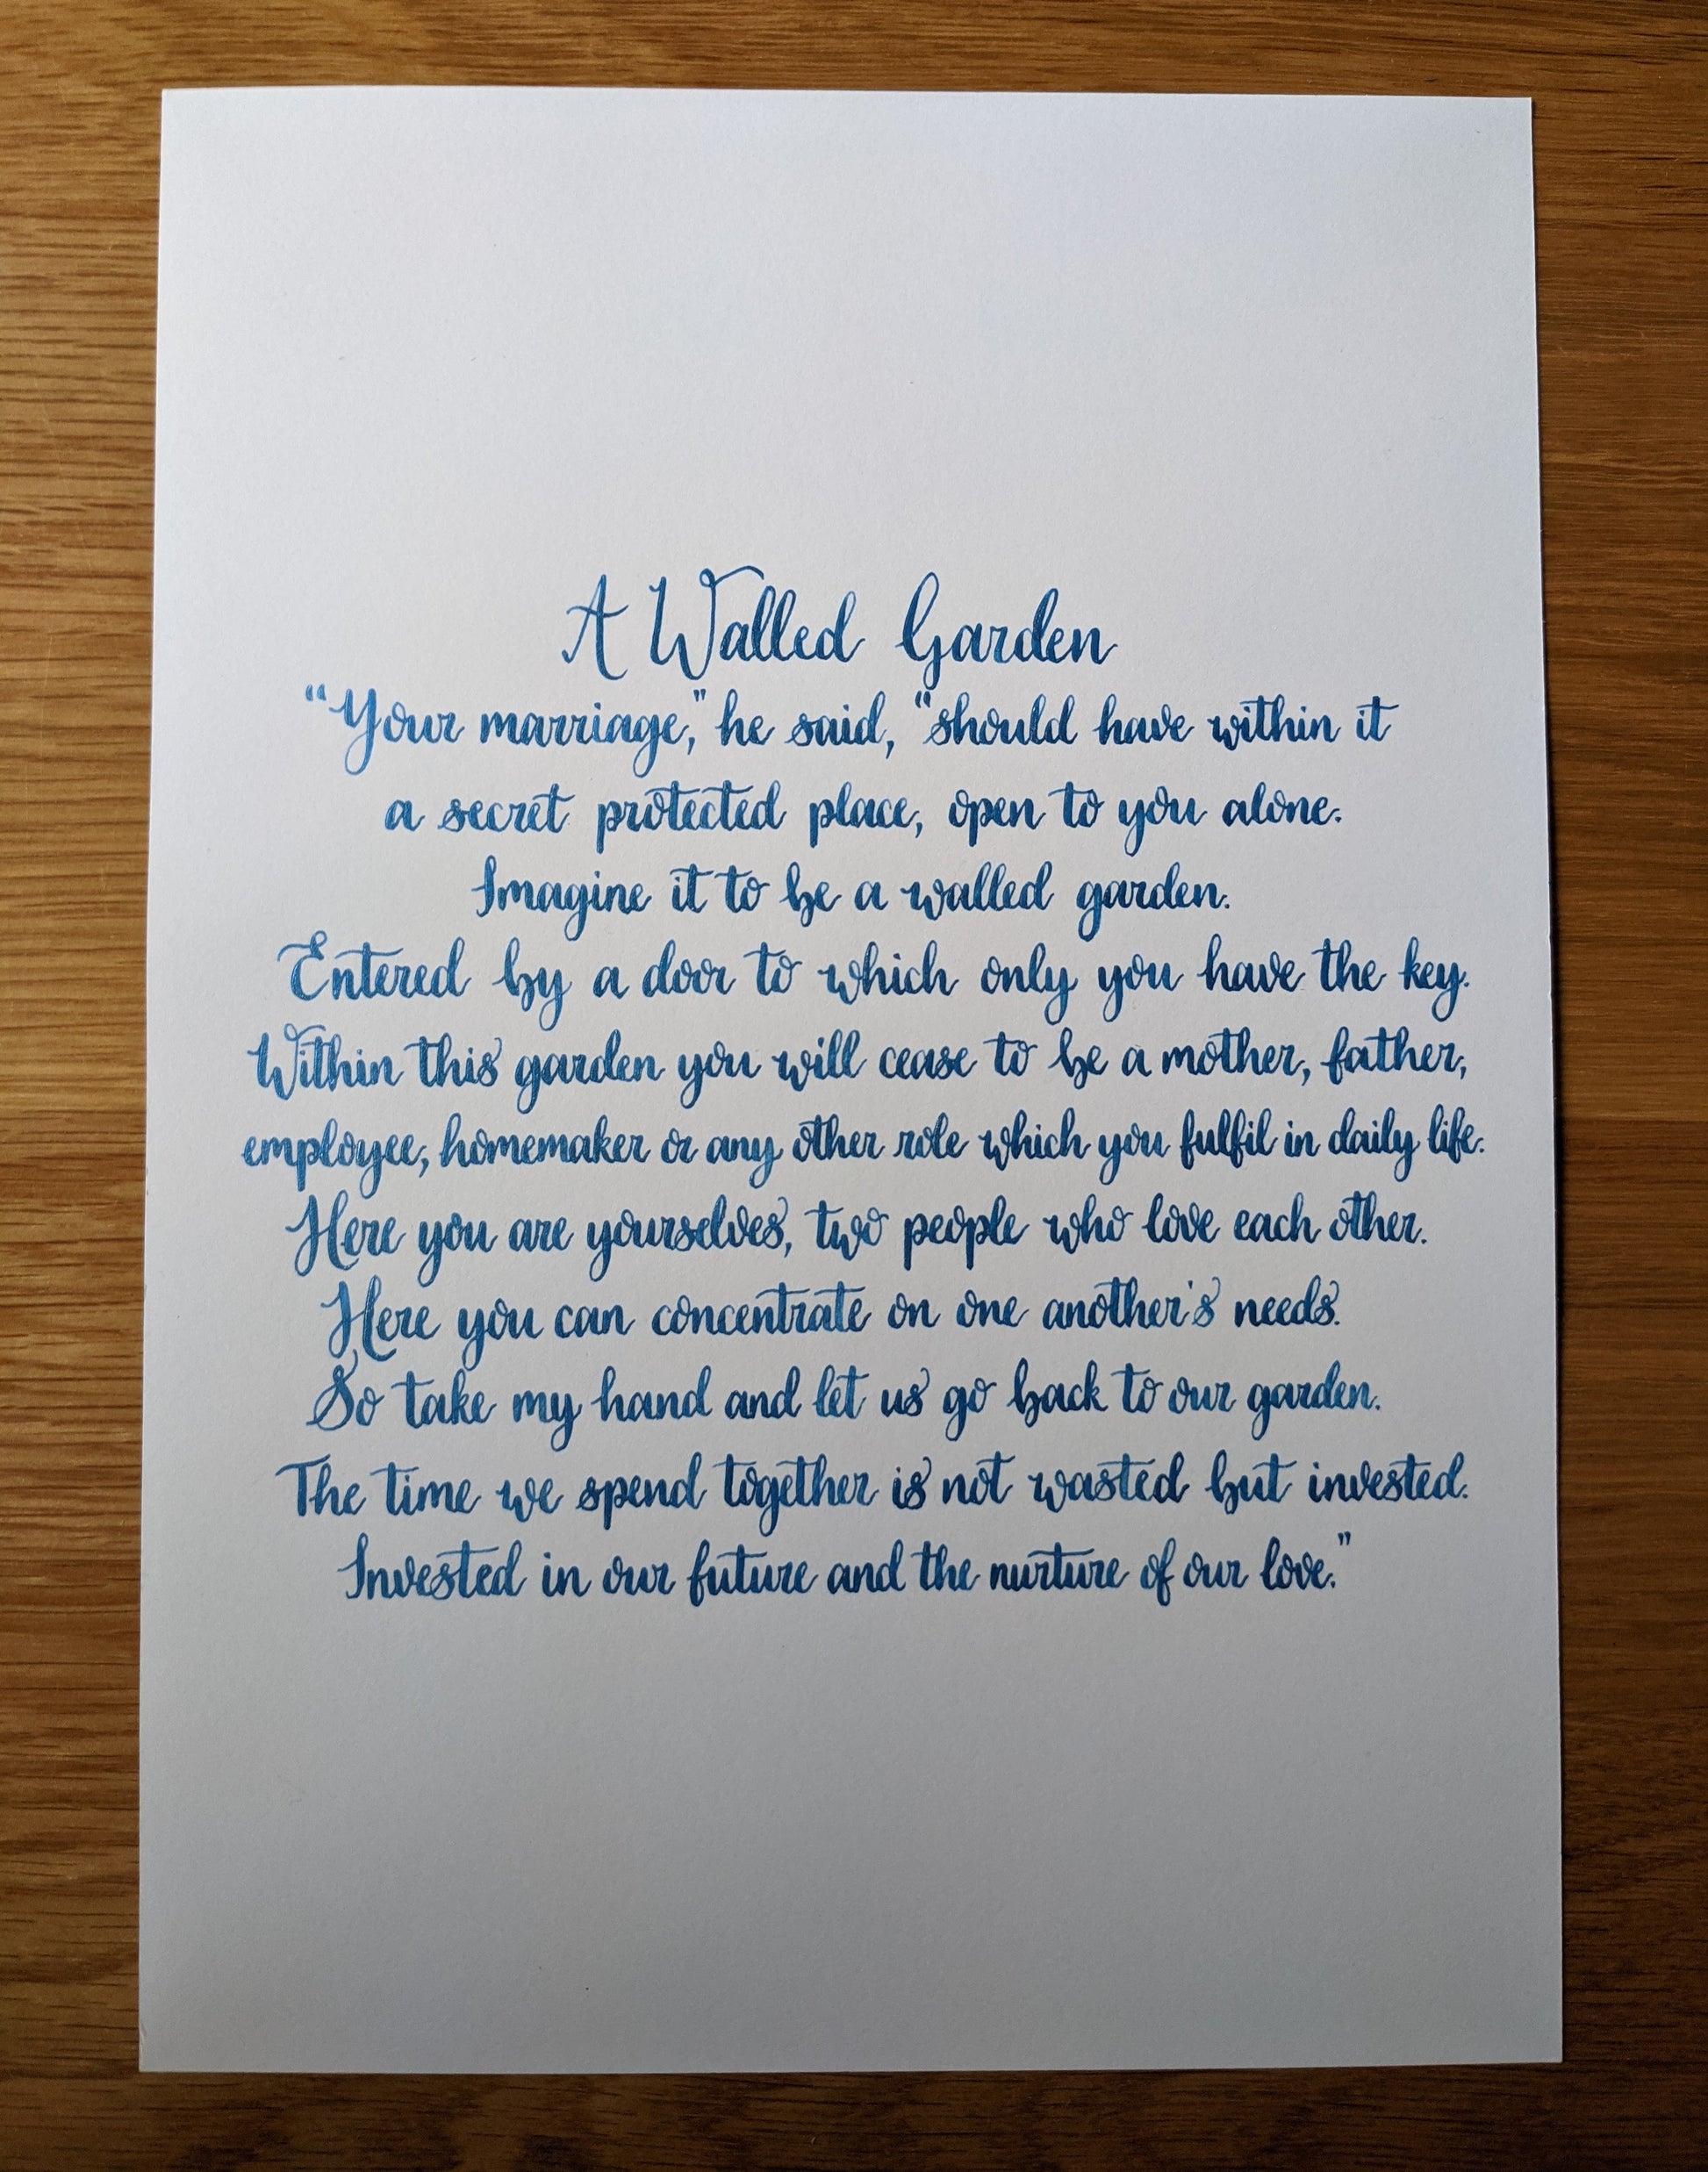 A Walled Garden
"Your marriage," he said, "should have within it
a secret protected place, open to you alone.
Imagine it to be a walled garden.
Entered by a door to which only you have the key.
Within this garden you will cease to be a mother, father,
employee, homemaker or any other role which you fulfil in daily life.
Here you are yourselves, two people who love each other.
Here you can concentrate on one another's needs.
So take my hand and let us go back to our garden.
The time we spend together is not wasted but invested.
Invested in our future and the nurture of our love."